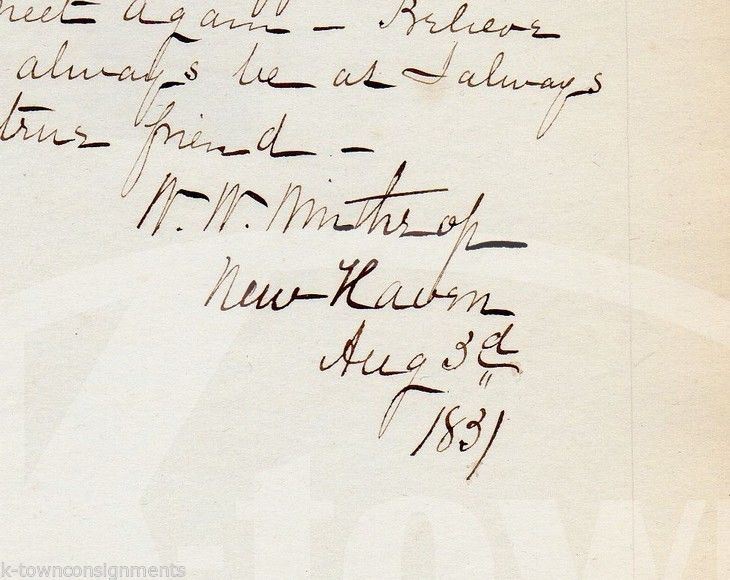 meet again – Believe
always be as I always
true friend –
W. W. Winthrop
New Haven
Aug 3d
1831
k-townconsignments
town